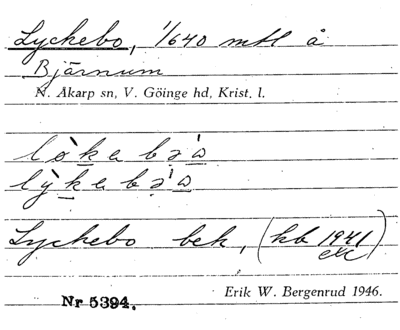 Lyckebo, 1/640 mtl å
Bjärnum
N. Åkarp sn, V. Göinge hd, Krist. l.
Lyckebo bek, (kb 1941
etc)
Nr 5394.
Erik W. Bergenrud 1946.